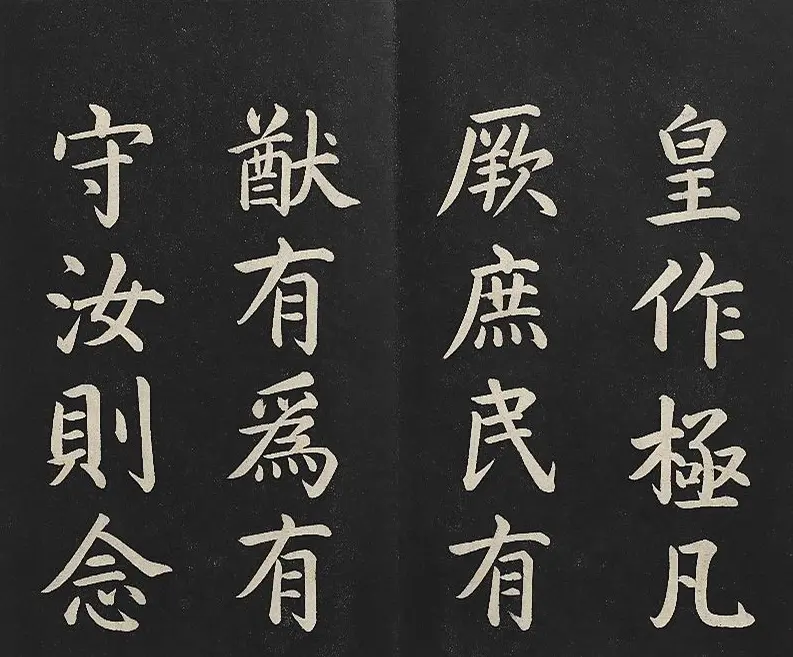 皇作極凡
厥庶民有
猷有爲有
守汝則念